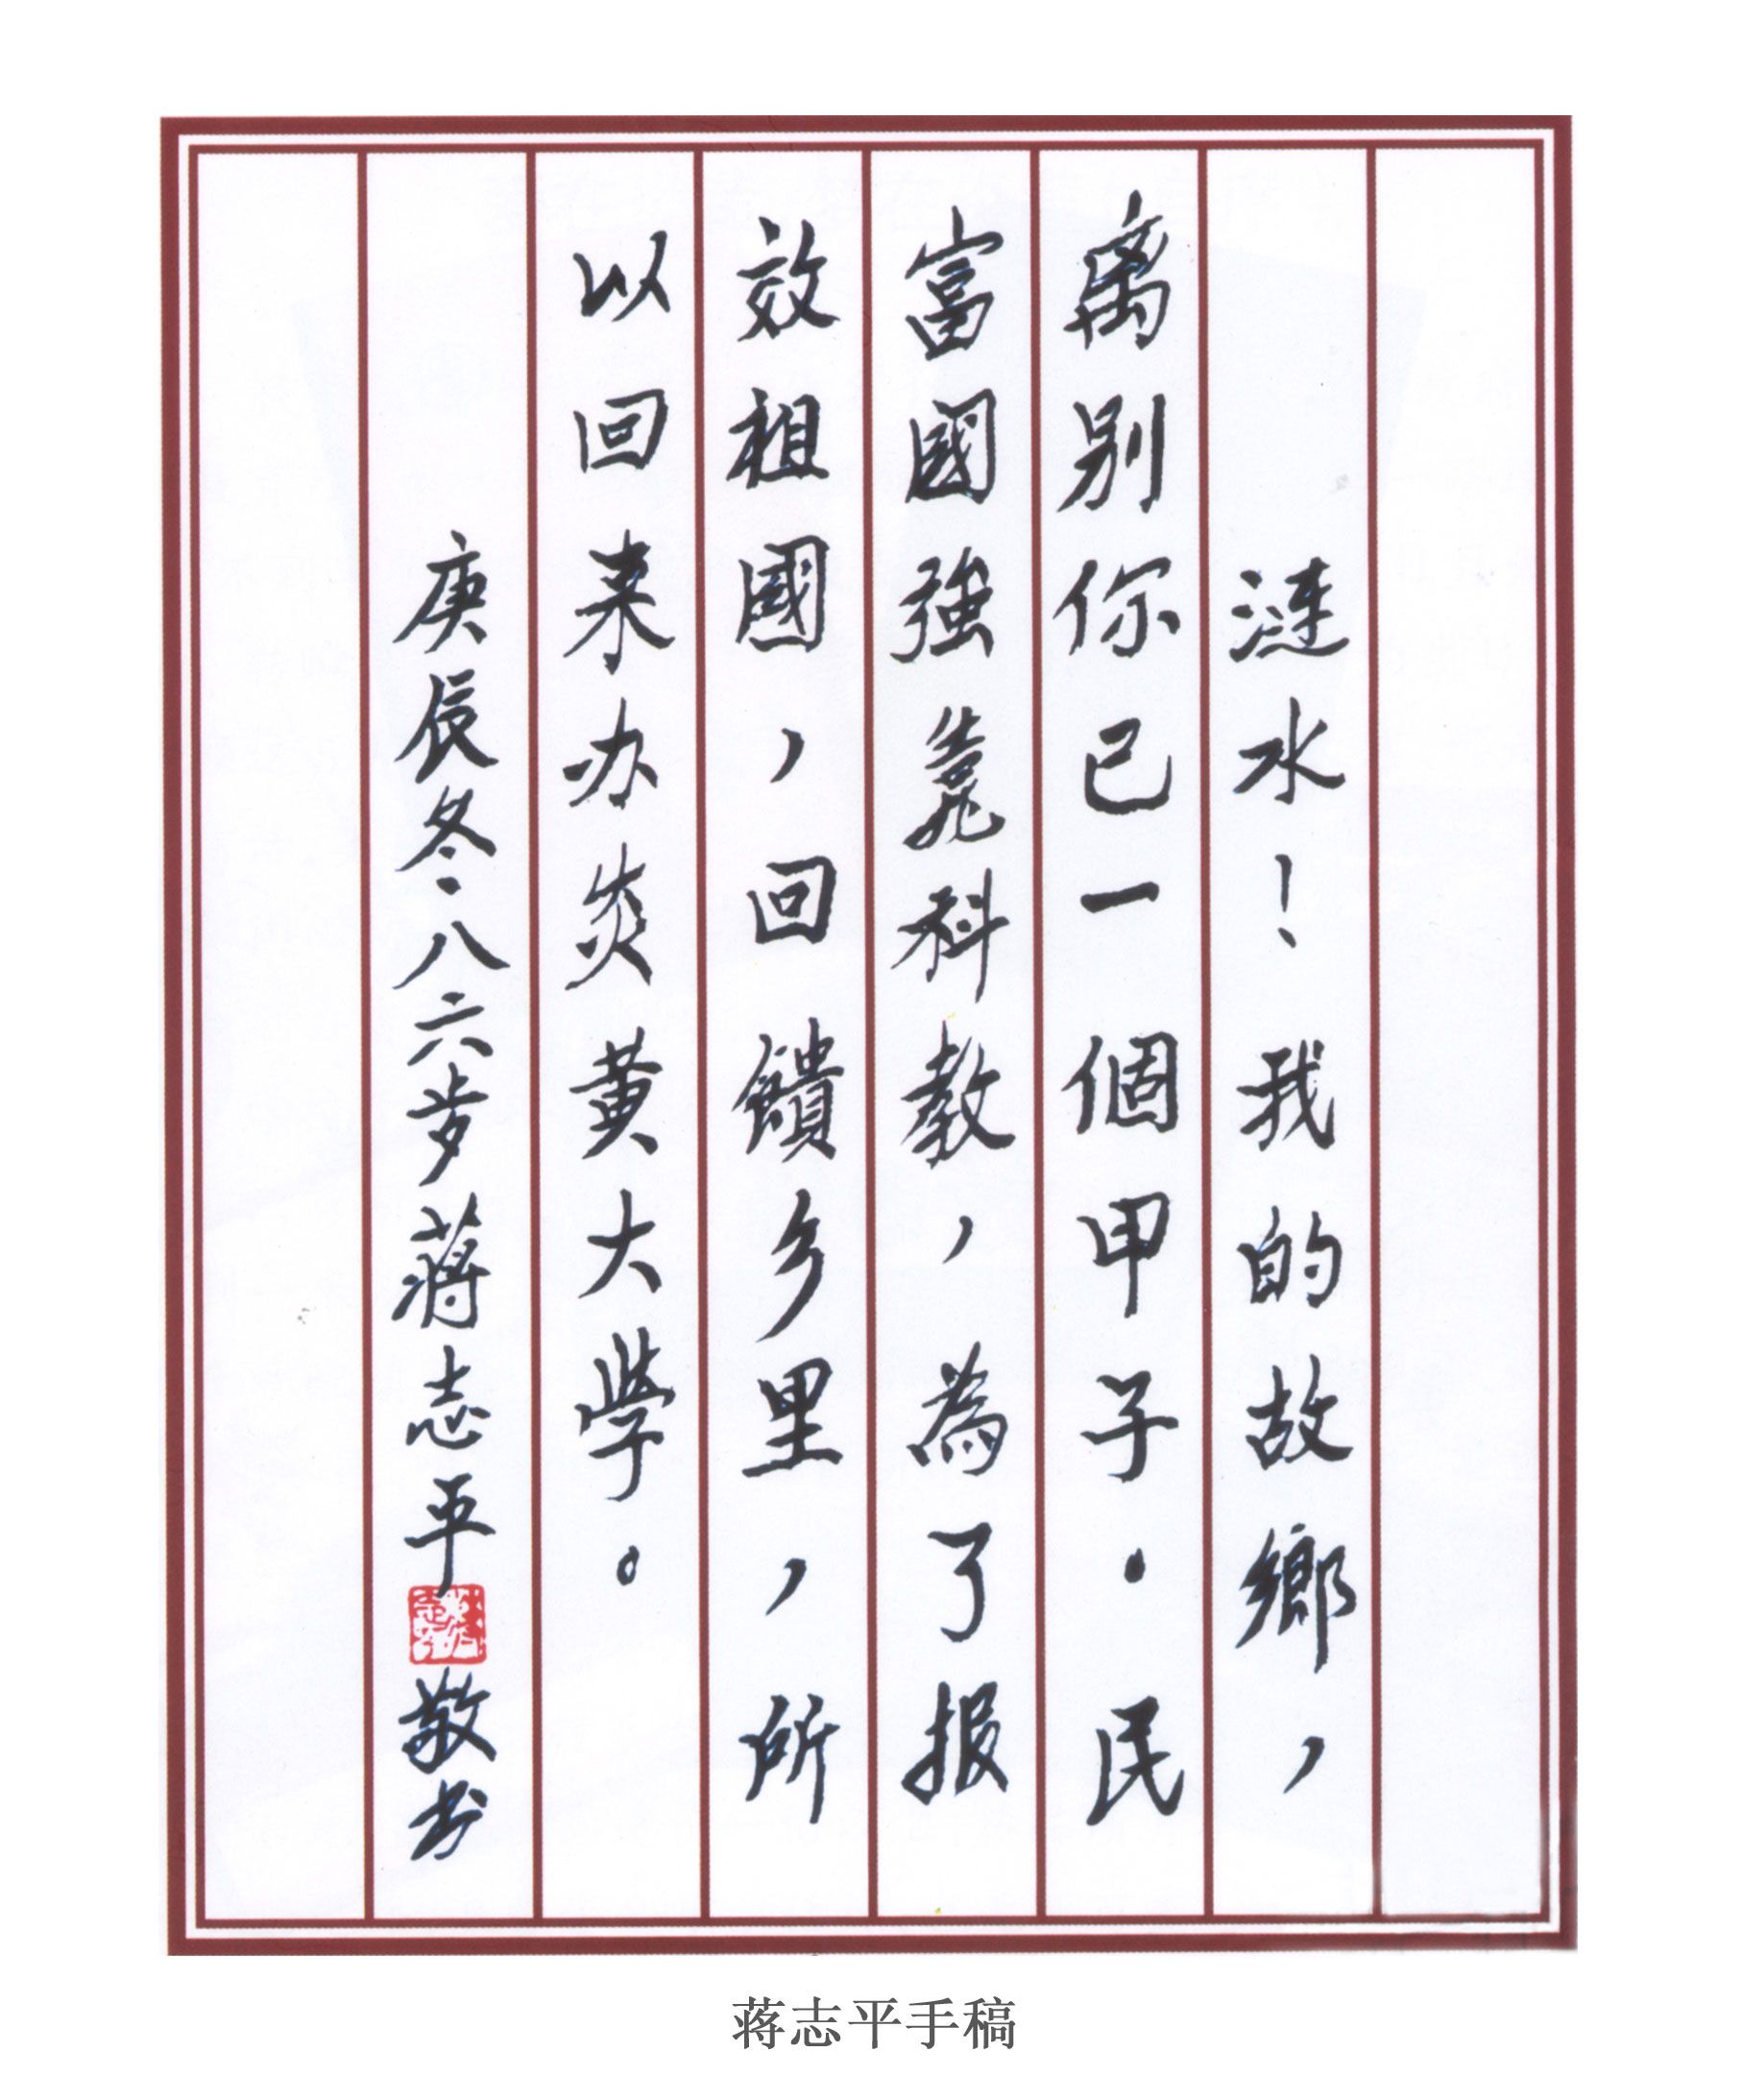 涟水！我的故鄉，
离别你已一個甲子。民
富國強靠科教，為了报
效祖國，回饋乡里，所
以回来办炎黄大學。
庚辰冬、八六步蒋志平敬书
蒋志平手稿